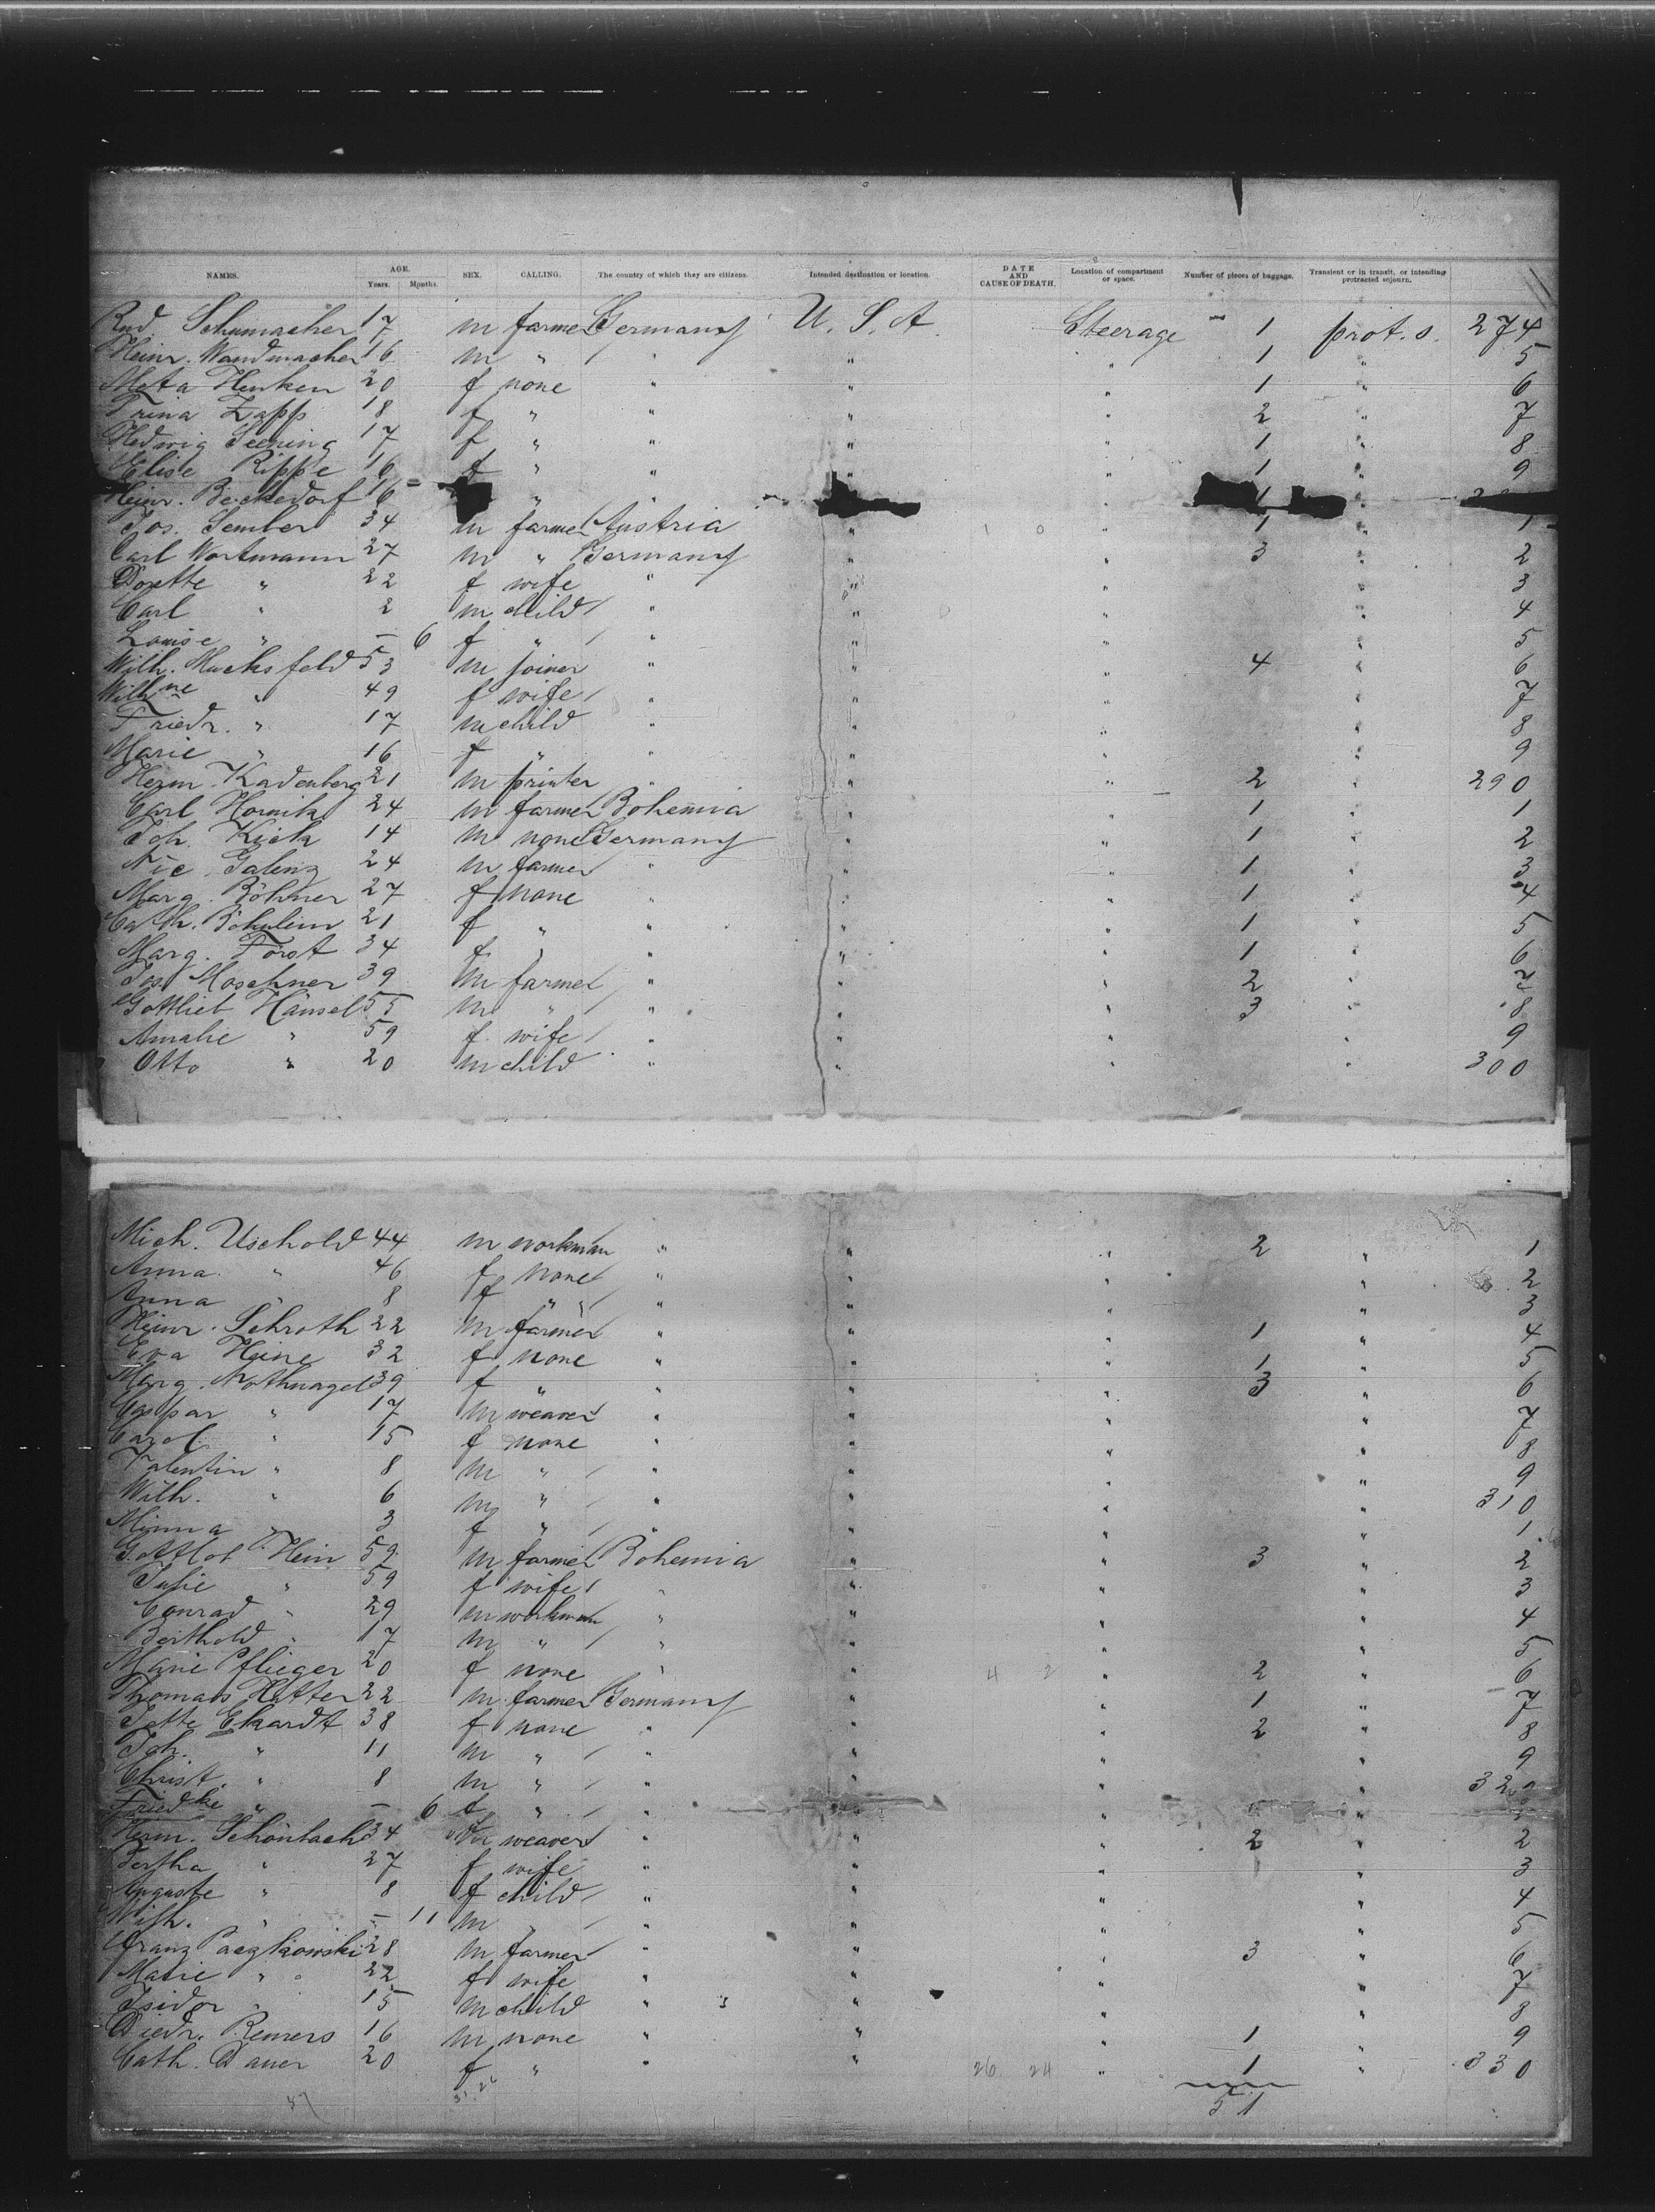 NAMES. AGE. Years. Months. SEX. CALLING. The country of which they are citizens. Intended destination or location. DATE AND CAUSE OF DEATH. Location of compartment or space. Number of pieces of baggage. Transient or in transit, or intending protracted sojourn.
Rud. Schumacher 17 m farmer Germany U. S. A. Steerage 1 prot. s. 274
Heinr. Wandmacher 16 m " " " " 1 " 5
Meta Henken 20 f none " " " 1 " 6
Trina Zapp 18 f " " " " 2 " 7
Hedwig Seening 17 f " " " " 1 " 8
Elise Rippe 16 f " " " " 1 " 9
Heinr. Beckedorf 16 " " " 1 "
Jos. Sember 34 m farmer Austria " " 1 " 1
Carl Wortmann 27 m " Germany " " 3 " 2
Dorette " 22 f wife " " " " 3
Carl " 2 m child " " " " 4
Louise " – 6 f " " " " " 5
Wilh. Mucksfeld 53 m joiner " " " 4 " 6
Wilhne " 49 f wife " " " " 7
Friedr. " 17 m child " " " " 8
Marie " 16 f " " " " " 9
Herm. Kadenberg 21 m printer " " " 2 " 290
Carl Hornik 24 m farmer Bohemia " " 1 " 1
Joh. Kick 14 m none Germany " " 1 " 2
Nic. Galenz 24 m farmer " " " 1 " 3
Marg. Böhner 27 f none " " " 1 " 4
Cath. 21 f " " " " 1 " 5
Marg. Först 34 f " " " " 1 " 6
Jos. Moschner 39 m farmer " " " 2 " 7
Gottlieb Hänsel 55 m " " " " 3 " 8
Amalie " 59 f wife " " " " 9
Otto " 20 m child " " " " 300
Mich. Uschold 44 m workman " " " 2 " 1
Anna " 46 f none " " " " 2
Anna " 8 f " " " " " 3
Heinr. Schroth 22 m farmer " " " 1 " 4
Eva Heine 32 f none " " " 1 " 5
Marg. Nothnagel 39 f " " " " 3 " 6
Caspar " 17 m weaver " " " " 7
Carol. " 15 f none " " " " 8
Valentin " 8 m " " " " " 9
Wilh. " 6 m " " " " " 310
Minna " 3 f " " " " " 1
Gottlob Hein 59 m farmer Bohemia " " 3 " 2
Julie " 59 f wife " " " " 3
Conrad " 29 m workman " " " " 4
Berthold " 17 m " " " " " 5
Marie Pflieger 20 f none " " 4 2 " 2 " 6
Thomas Hatter 22 m farmer Germany " " 1 " 7
Jette Ekardt 38 f none " " " 2 " 8
Joh. " 11 m " " " " " 9
Christ. " 8 m " " " " " 320
Friedke " – 6 f " " " " "
Herm. Schönbach 34 m weaver " " " 2 " 2
Bertha " 27 f wife " " " " 3
Auguste " 8 f child " " " " 4
Wilh. " – 11 m " " " " " 5
Franz 28 m farmer " " " 3 " 6
Marie " 22 f wife " " " " 7
Isidor " 15 m child " " " " 8
Diedr. Remers 16 m none " " " 1 " 9
Cath. Dauer 20 f " " " 26 24 " 1 " 330
51